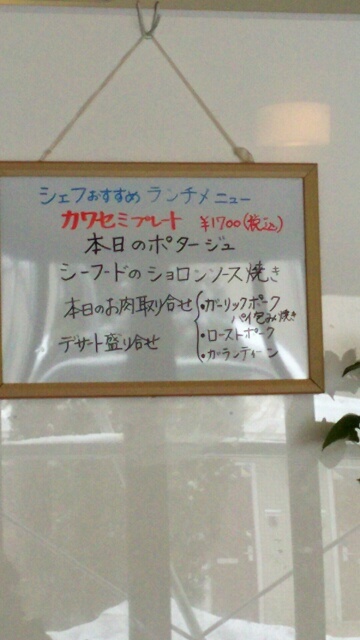 シェフおすすめ ランチメニュー
カワセミプレート ¥1700(税込)
本日のポタージュ
シーフードのショロンソース焼き
本日のお肉取り合せ
・ガーリックポーク
パイ包み焼き
・ローストポーク
・ガランティーン
デザート盛り合せ